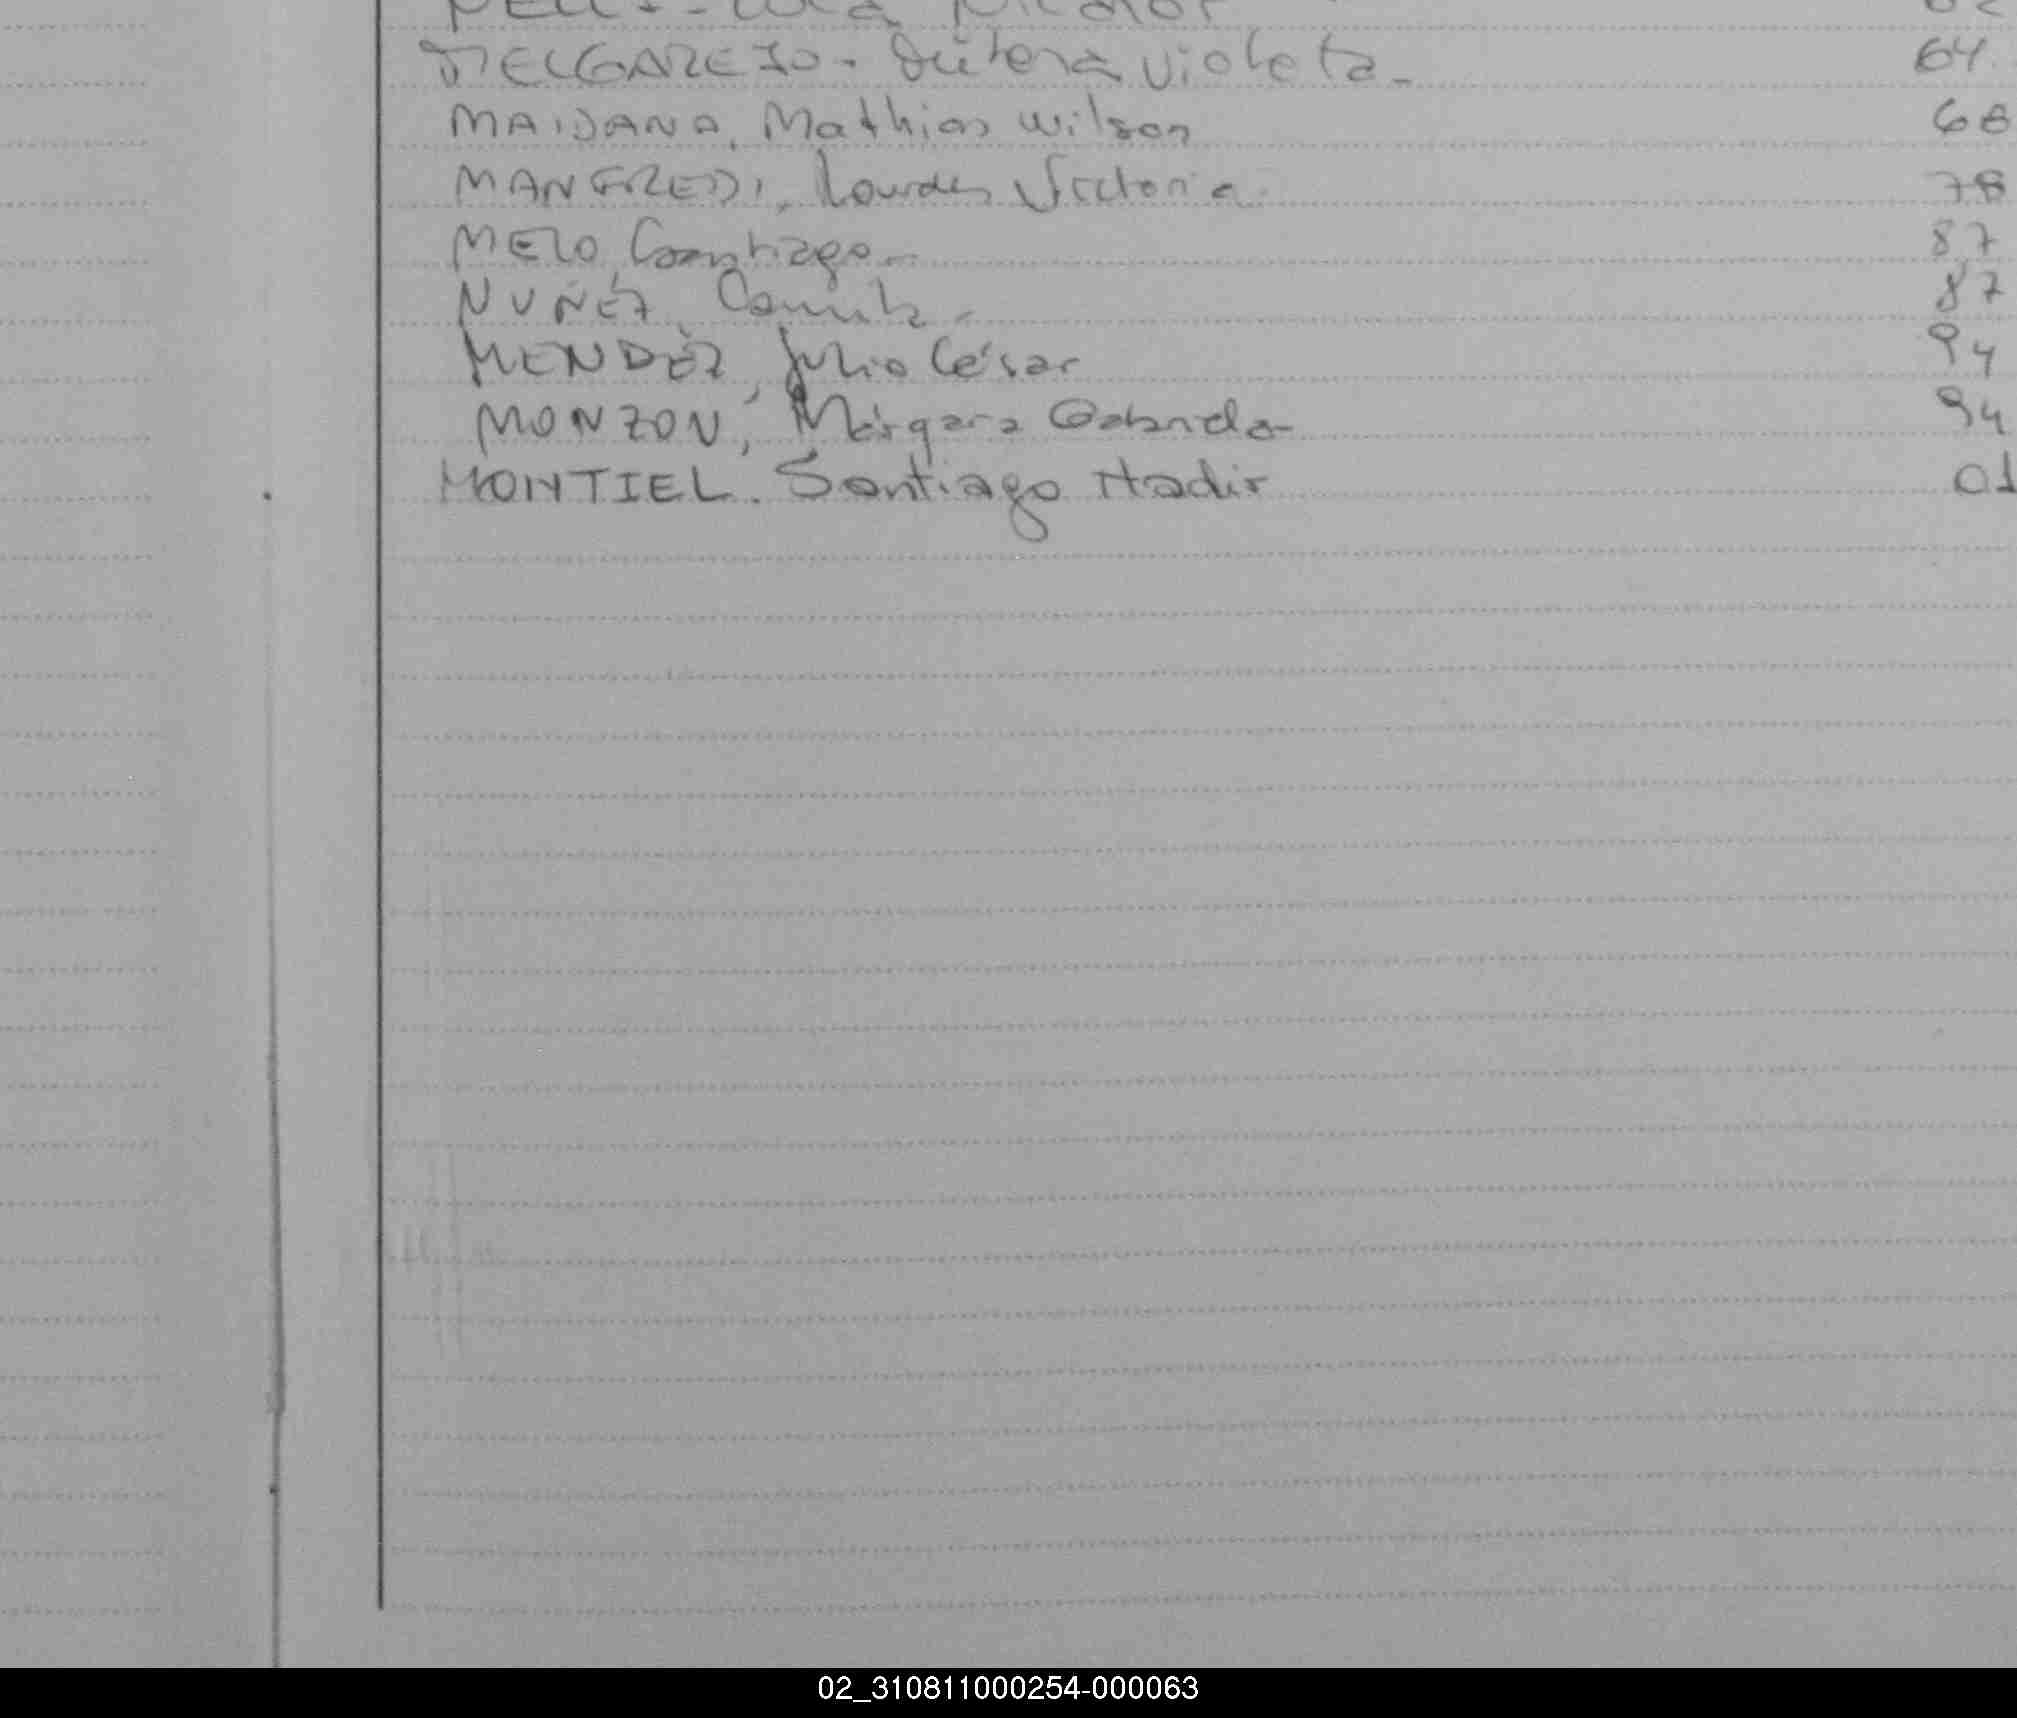 MELGAREJO - violeta - 64
MAIDANA, Mathias Wilson 68
MANFREDI, Lourdes Victoria. 78
MELO, Santiago - 87
NUÑEZ, Camila - 87
MENDEZ, Julio César 94
MONZON, Márgara Gabriela 94
MONTIEL. Santiago Hadir 01
02_310811000254-000063